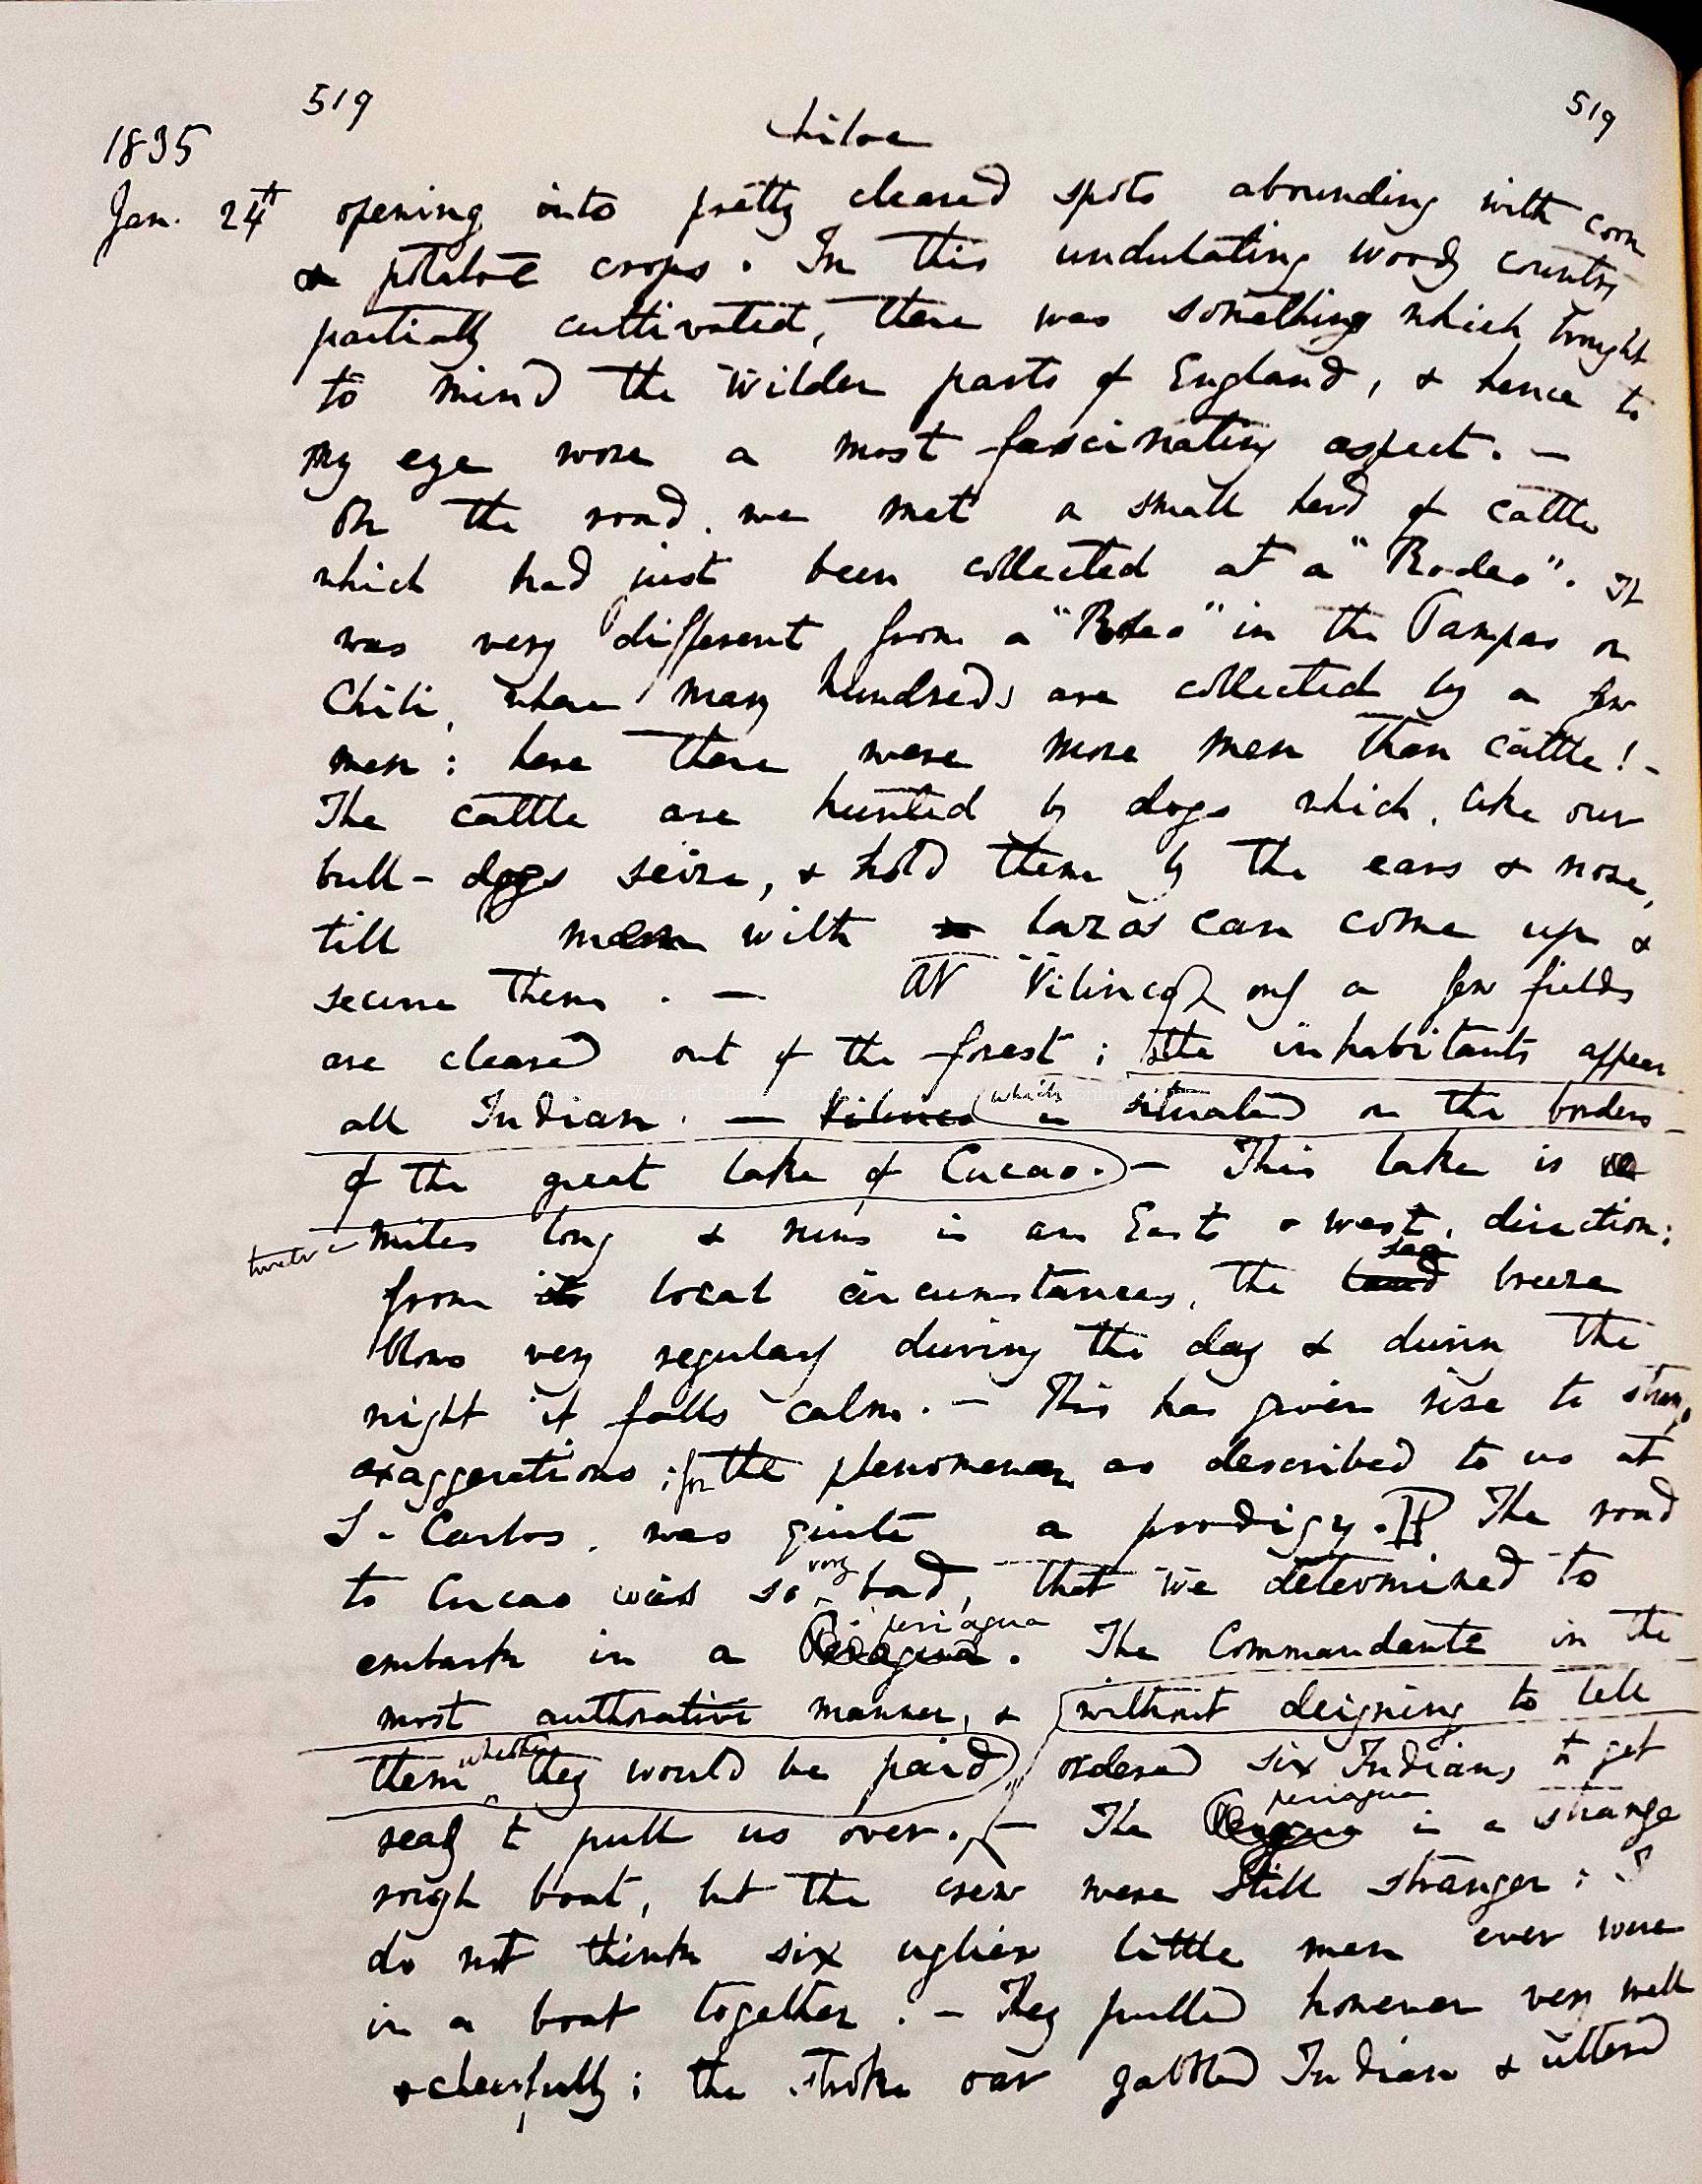 519
519
Chiloe
1835
Jan. 24th opening into pretty cleared spots abounding with corn
& potatoe crops. In this undulating woody country
partially cultivated, there was something which brought
to mind the wilder parts of England, & hence to
my eye wore a most fascinating aspect. —
On the road, we met a small herd of cattle
which had just been collected at a "Rodeo". It
was very different from a "Rodeo" in the Pampas or
Chili, where many hundreds are collected by a few
men: here there were more men than cattle! -
The cattle are hunted by dogs which, like our
bull-dogs seize, & hold them by the ears & nose,
till men with lazos can come up &
secure them. — At Vilinco, only a few fields
are cleared out of the forest; the inhabitants appear
all Indian. — Vilinco which is situated on the borders
of the great lake of Cucao. — This lake is
twelve miles long & runs in an East & West, direction:
from its local circumstances, the land sea breeze
blows very regularly during the day & during the
night it falls calm. — This has given rise to strange
exaggerations; for the phenomenon as described to us at
S. Carlos, was quite a prodigy. The road
to Cucao was so very bad, that we determined to
embark in a Periagua periagua. The Commandante in the
most authorative manner, & without deigning to tell
them whether they would be paid, ordered six Indians to get
ready to pull us over. — The periagua is a strange
rough boat, but the crew were still stranger: I
do not think six uglier little men ever were
in a boat together. — They pulled however very well
& cheerfully; the stroke oar gabbled Indian & uttered